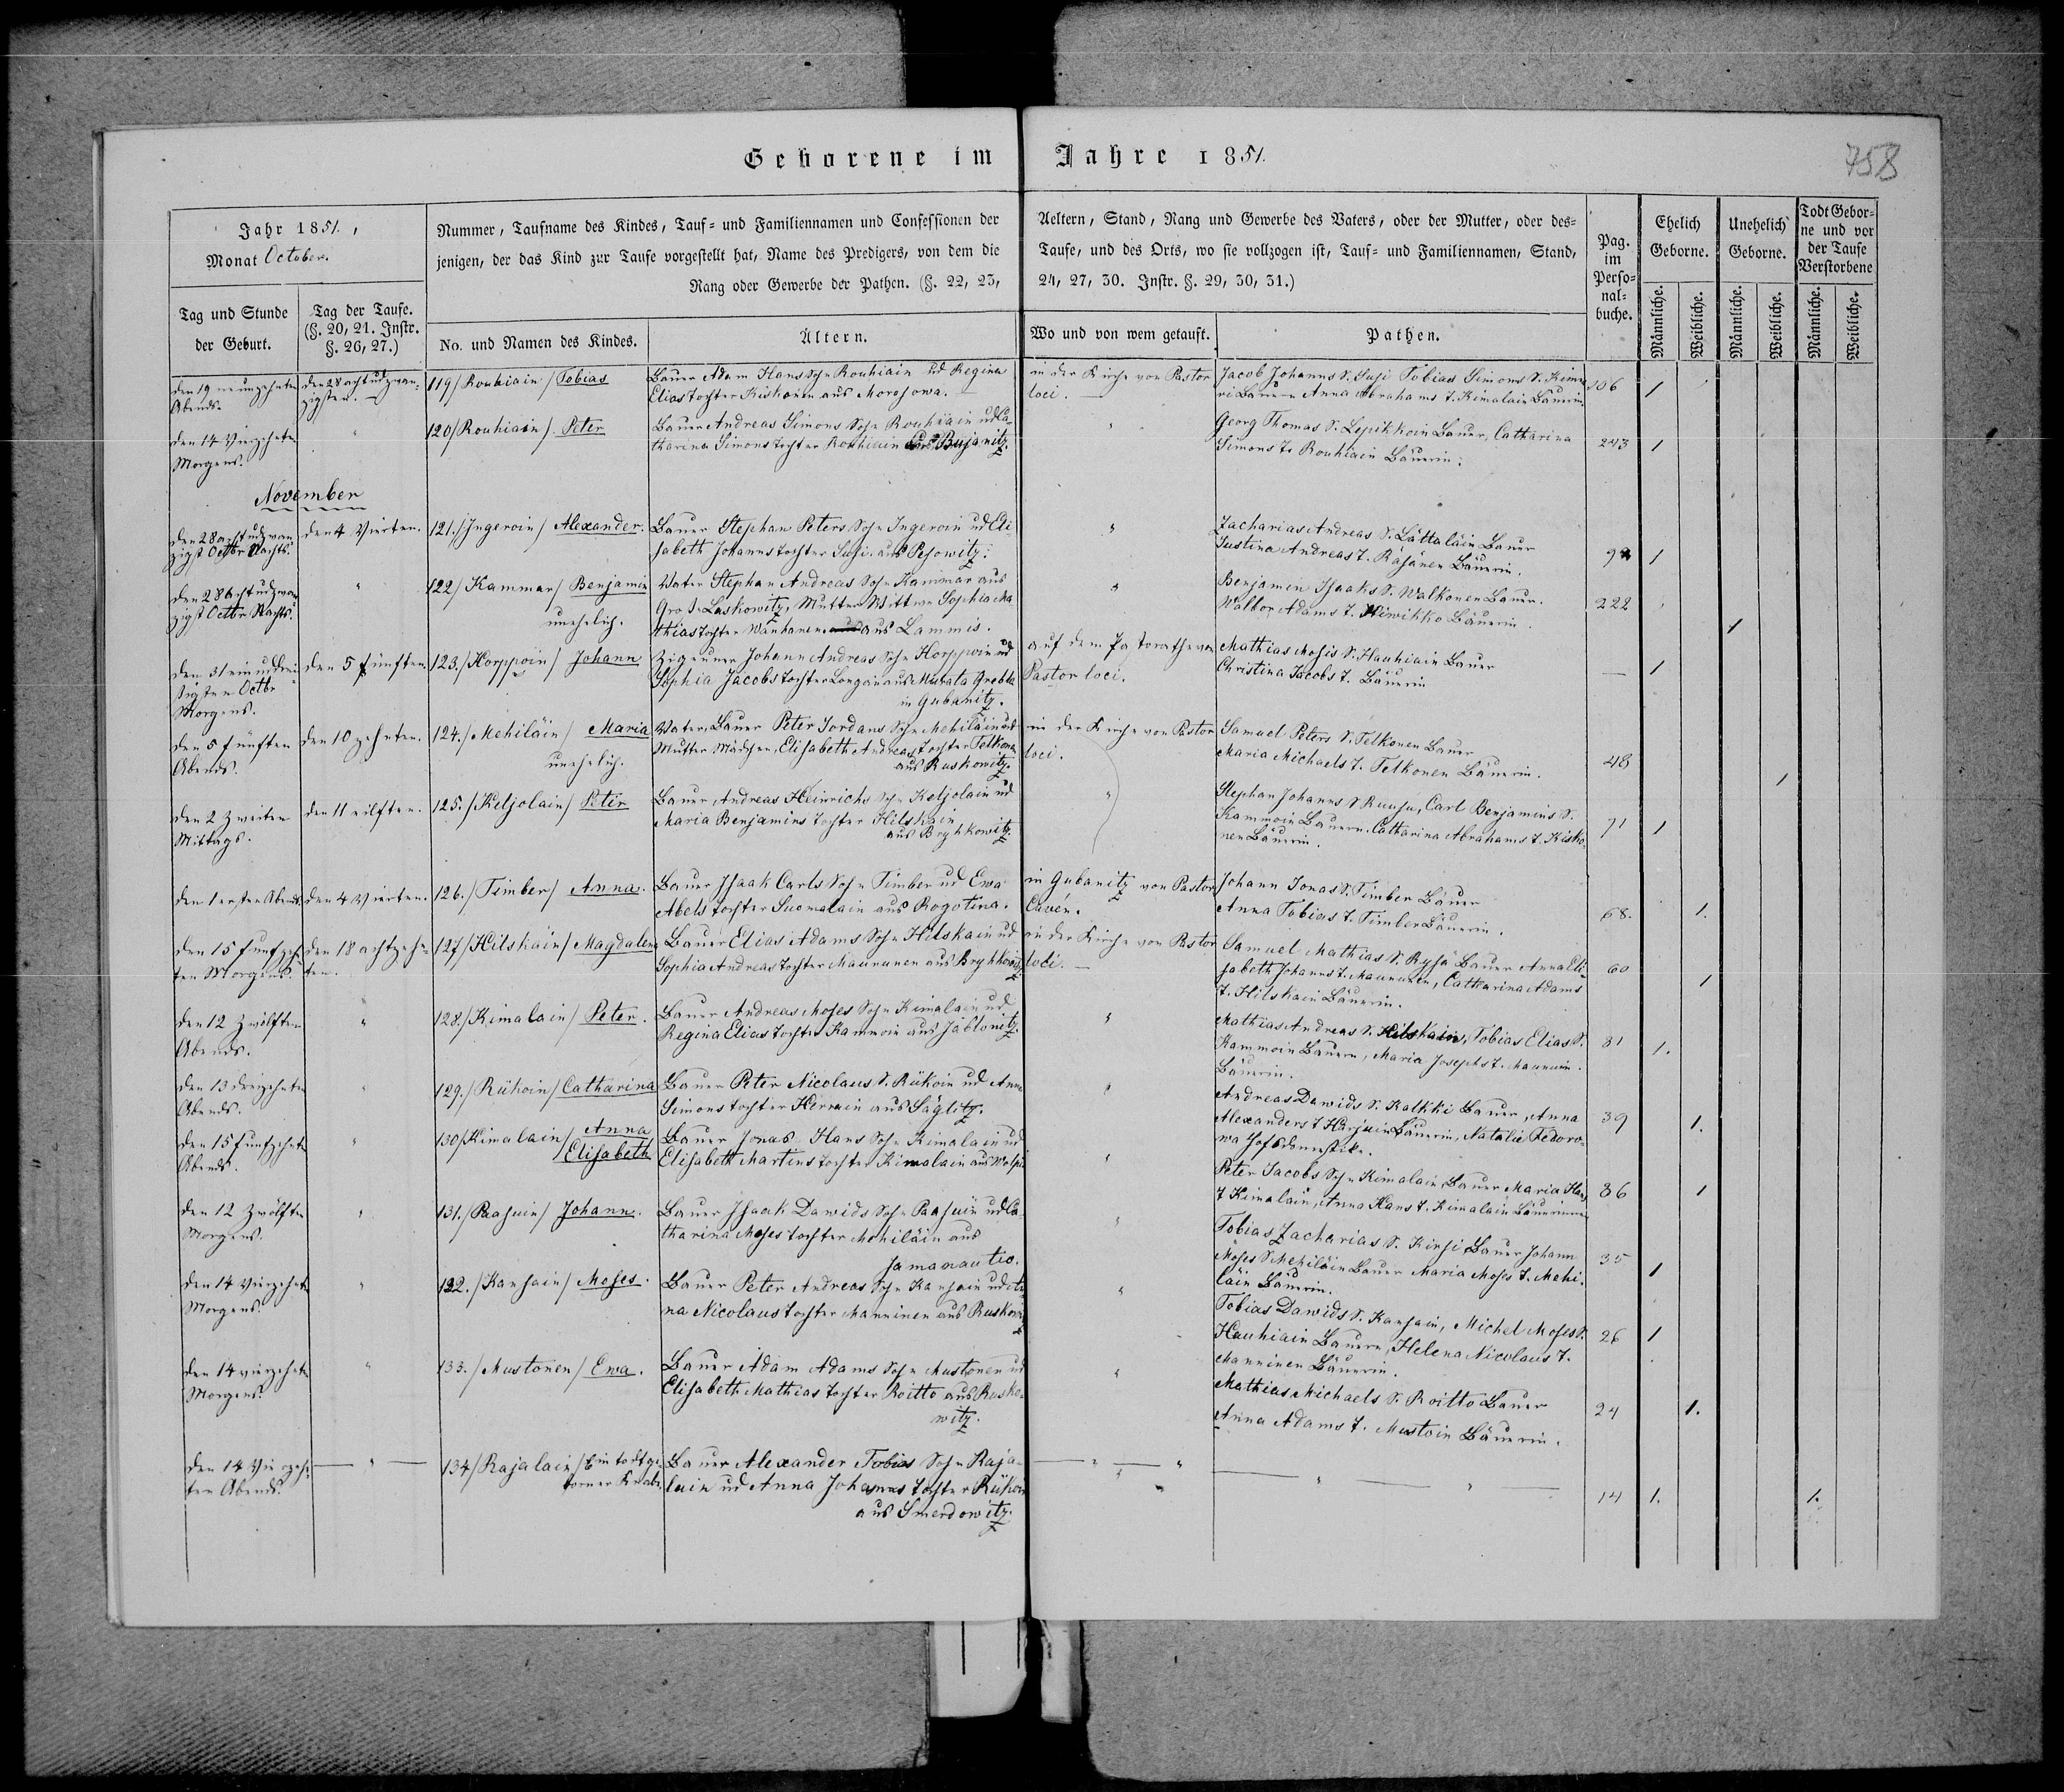 Geborene im Jahre 1851.
758
Jahr 1851,
Monat October.
Nummer, Taufname des Kindes, Tauf- und Familiennamen und Confessionen der Aeltern, Stand, Rang und Gewerbe des Vaters, oder der Mutter, oder des-
jenigen, der das Kind zur Taufe vorgestellt hat, Name des Predigers, von dem die Taufe, und des Orts, wo sie vollzogen ist, Tauf- und Familiennamen, Stand,
Rang oder Gewerbe der Pathen. (§. 22, 23, 24, 27, 30. Instr. §. 29, 30, 31.)
Pag.
im
Perso-
nal-
buche.
Ehelich
Geborne.
Unehelich
Geborne.
Todt Gebor-
ne und vor
der Taufe
Verstorbene
Tag und Stunde
der Geburt.
Tag der Taufe.
(§. 20, 21. Instr.
§. 26, 27.)
No. und Namen des Kindes.
Ältern.
Wo und von wem getauft.
Pathen.
Männliche.
Weibliche.
Männliche.
Weibliche.
Männliche.
Weibliche.
den 19 neunzehnten
Abends.
den 28 achtudzwan-
zigsten.
119/ Rouhiain/ Tobias
Bauer Adam Hans Sohn Rouhiain ud Regina
Elias Tochter Kiskonen aus Morosowa.
in der Kirche von Pastor
loci.
Jacob Johanns S. Susi Tobias Simons S. Kime
ri Bauern Anna Abrahams T. Kimalain Bäuerin.
106
1
den 14 Vierzehnten
Morgens.
"
120/ Rouhiain/ Peter
Bauer Andreas Simons Sohn Rouhiain ud Ca-
tharina Simons Tochter Rouhiain aus Bujanitz.
"
Georg Thomas S. Lepikkoin Bauer, Catharina
Simons T. Rouhiain Bäuerin.
243
1
November
den 28 achtudzwan
zigst Octbr Nachts.
den 4 Vierten.
121./ Ingeroin/ Alexander.
Bauer Stephan Peters Sohn Ingeroin ud Eli-
sabeth Johanns Tochter Susi aus Pesowitz.
"
Zacharias Andreas S. Lättäläin Bauer
Justina Andreas T. Räsänen Bäuerin.
1
den 28 achtudzwan
zigst Octbr Nachts.
"
122/ Kammar/ Benjamin
unehelich.
Vater Stephan Andreas Sohn Kammar aus
Gros Laskowitz, Mutter Wittwe Sophia Ma
thias Tochter Wänkanen aus Lammis.
"
Benjamin Isaaks S. Walkonen Bauer.
Walbor Adams T. Hiwikko Bäuerin.
222
1
den 31 einuddrei
sigsten Octbr
Morgens.
den 5 fünften
123./ Korppoin/ Johann
Zigeuner Johann Andreas Sohn Korppoin ud
Sophia Jacobs Tochter Longoin aus Murata Grebla
in Gubanitz.
auf dem Pastorathe von
Pastor loci.
Mathias Mosis S. Hauhiain Bauer
Christina Jacobs T. Bäuerin
—
1
den 5 fünften
Abends.
den 10 zehnten.
124./ Mehiläin/ Maria
unehelich.
Vater, Bauer Peter Jordans Sohn Mehiläin ud
Mutter Mädchen, Elisabeth Andreas Tochter Telkonen
aus Ruskowitz.
in der Kirche von Pastor
loci.
Samuel Peters S. Telkonen Bauer
Maria Michaels T. Telkonen Bäuerin.
48
1
den 2 Zweiten
Mittags.
den 11 eilften.
125./ Keljolain/ Peter
Bauer Andreas Heinrichs Sohn Keljolain ud
Maria Benjamins Tochter Hilskain
aus Bryhkowitz
"
Stephan Johanns S Ruusu, Carl Benjamins S.
Kammoin Bauern. Catharina Abrahams T. Kisko-
nen Bäuerin.
71
1
den 1 ersten Abends
den 4 Vierten.
126./ Timber/ Anna.
Bauer Isaak Carls Sohn Timber ud Ewa
Abels Tochter Suomalain aus Rogotina.
in Gubanitz von Pastor
Cavén.
Johann Jonas S. Timber Bauer
Anna Tobias T. Timber Bäuerin.
68.
1.
den 15 funfzehn-
ten Morgens.
den 18 achtzehn-
ten.
127/ Hilskain/ Magdalena
Bauer Elias Adams Sohn Hilskain ud
Sophia Andreas Tochter Maununen aus Bryhkowitz
in der Kirche von Pastor
loci.
Samuel Mathias S. Rysä Bauer Anna Eli-
sabeth Johanns T. Maununen, Catharina Adams
T. Hilskain Bäuerin.
60
1
den 12 Zwölften
Abends.
"
128./ Kimalain/ Peter.
Bauer Andreas Moses Sohn Kimalain ud
Regina Elias Tochter Kammoin aus Jablonitz.
"
Mathias Andreas S. Hilskain, Tobias Elias S.
Kammoin Bauern, Maria Josephs T. Maunuin.
Bäuerin.
81
1.
den 13 dreizehnten
Abends.
"
129./ Rükoin/ Catharina
Bauer Peter Nicolaus S. Rükoin ud Anna
Simons Tochter Hirwain aus Säglitz.
"
Andreas Dawids S. Kalkki Bauer, Anna
Alexanders T Harjuin Bäuerin, Natalie Fedoro-
wa Hofsdomestike.
39
1.
den 15 funfzehnten
Abends.
"
130/ Kimalain/ Anna
Elisabeth
Bauer Jonas Hans Sohn Kimalain ud
Elisabeth Martins Tochter Kimalain aus
"
Peter Jacobs Sohn Kimalain Bauer Maria Hans
T Kimalain, Anna Hans T. Kimalain Bäuerinnen
86
1
den 12 Zwölften
Morgens.
"
131./ Paasuin/ Johann.
Bauer Isaak Dawids Sohn Paasuin ud Ca-
tharina Moses Tochter Mehiläin aus
Samanautio.
"
Tobias Zacharias S. Kirsi Bauer Johann
Moses S Mehiläin Bauer Maria Moses T. Mehi-
läin Bäuerin.
35
1
den 14 Vierzehnten
Morgens.
"
132./ Kansain/ Moses.
Bauer Peter Andreas Sohn Kansain ud An
na Nicolaus Tochter Manninen aus Ruskowitz
"
Tobias Dawids S. Kansain, Michel Moses S.
Hauhiain Bauern, Helena Nicolaus T.
Manninen Bäuerin.
26
1
den 14 vierzehnten
Morgens.
"
133./ Mustonen/ Ewa.
Bauer Adam Adams Sohn Mustonen ud
Elisabeth Mathias Tochter Roitto aus Rusko-
witz.
"
Mathias Michaels S. Roitto Bauer
Anna Adams T. Mustoin Bäuerin.
24
1.
den 14 Vierzehn-
ten Abends.
— " —
134/ Rajalain/ Ein todtge-
borner Knabe
Bauer Alexander Tobias Sohn Raja-
lain ud Anna Johanns Tochter Rükoin
aus Smerdowitz.
— " — "
— " — " —
14
1.
1.